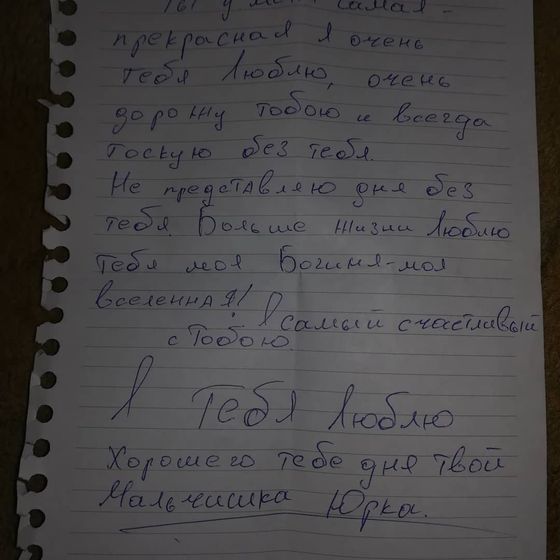 Ты у меня самая-
прекрасная я очень
тебя люблю, очень
дорожу тобою и всегда
тоскую без тебя.
Не представляю дня без
тебя. Больше жизни люблю
тебя моя Богиня-моя
вселенная! Я самый счастливый
с Тобою.
Я Тебя люблю
Хорошего тебе дня твой
Мальчишка Юрка.